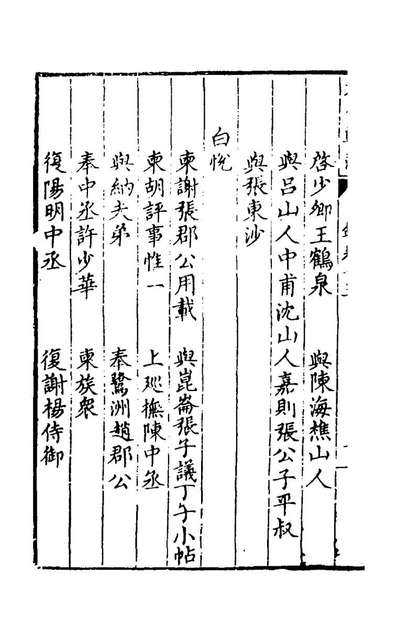 啓少卿王鶴泉　與陳海樵山人
與呂山人中甫沈山人嘉則張公子平叔
與張東沙
白悅
柬謝張郡公用載　與崑崙張子議丁午小帖
柬胡評事惟一　上巡撫陳中丞
與納夫弟　奉鷺洲趙郡公
奉中丞許少華　柬族衆
復陽明中丞　復謝楊侍御